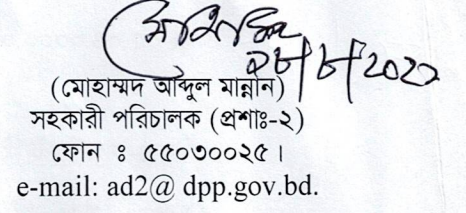 (মোহাম্মদ আব্দুল মান্নান)
সহকারী পরিচালক (প্রশাঃ-২)
ফোন ঃ ৫৫০৩০০২৫ ।
e-mail: ad2@ dpp.gov.bd.